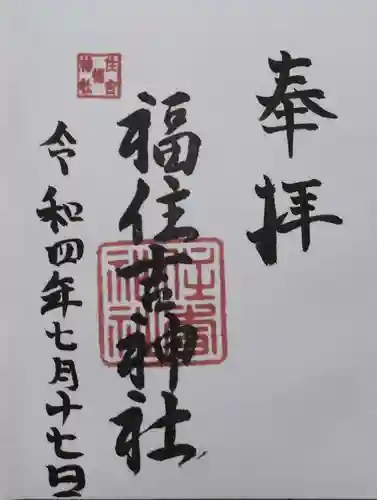 奉拝
福住吉神社
令和四年七月十七日